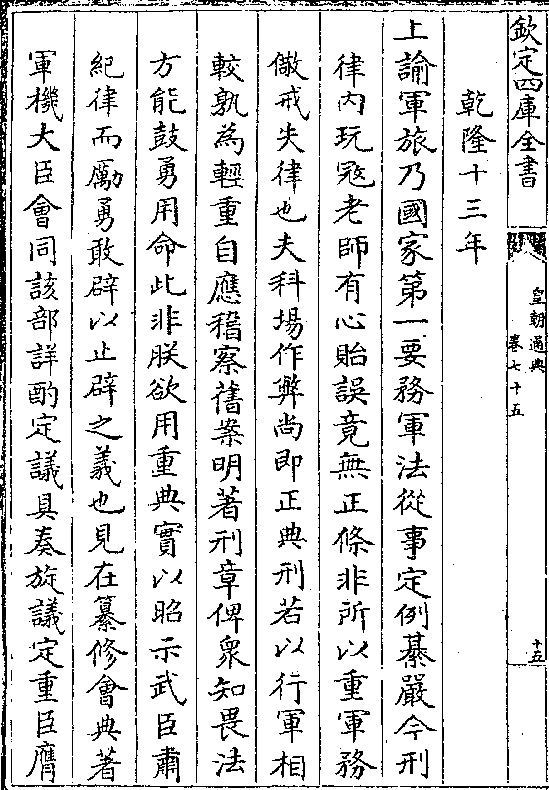 欽定四庫全書
皇朝通典
卷七十五
十五
乾隆十三年
上諭軍旅乃國家第一要務軍法從事定例綦嚴今刑
律内玩寇老師有心貽誤竟無正條非所以重軍務
儆戒失律也夫科場作弊尚即正典刑若以行軍相
較孰為輕重自應稽察舊案明著刑章俾衆知畏法
方能鼓勇用命此非朕欲用重典實以昭示武臣肅
紀律而勵勇敢辟以止辟之義也見在纂修會典著
軍機大臣會同該部詳酌定議具奏旋議定重臣膺